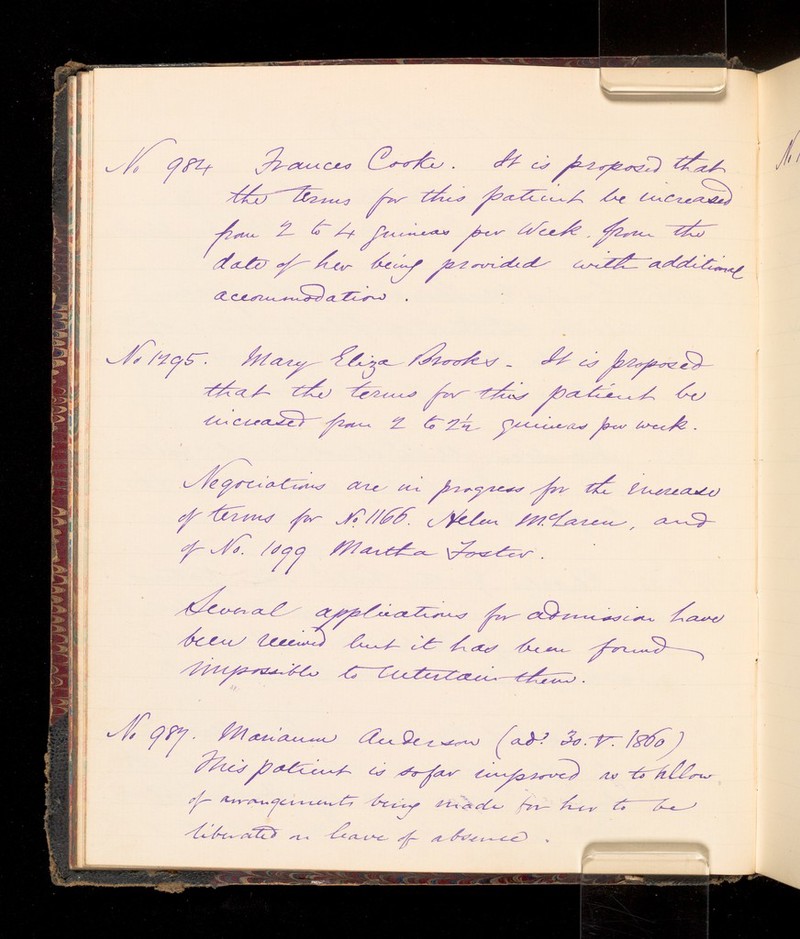 No 984 Frances Cooke. It is proposed that
the terms for this patient be increased
from 2 to 4 guineas per Week. from the
date of her being provided with additional
accommodation.
No 1295. Mary Eliza Brooks - It is proposed
that the terms for this patient be
increased from 2 to 2½ guineas per week.
Negociations are in progress for the increase
of terms for No. 1166. Helen McLaren, and
of No. 1099 Martha Foster.
Several applications for admission have
been received but it has been found
impossible to entertain them.
No 987. Marianne Anderson (add 30. V. 1860)
This patient is so far improved as to allow
of arrangements being made for her to be
liberated on leave of absence.
No